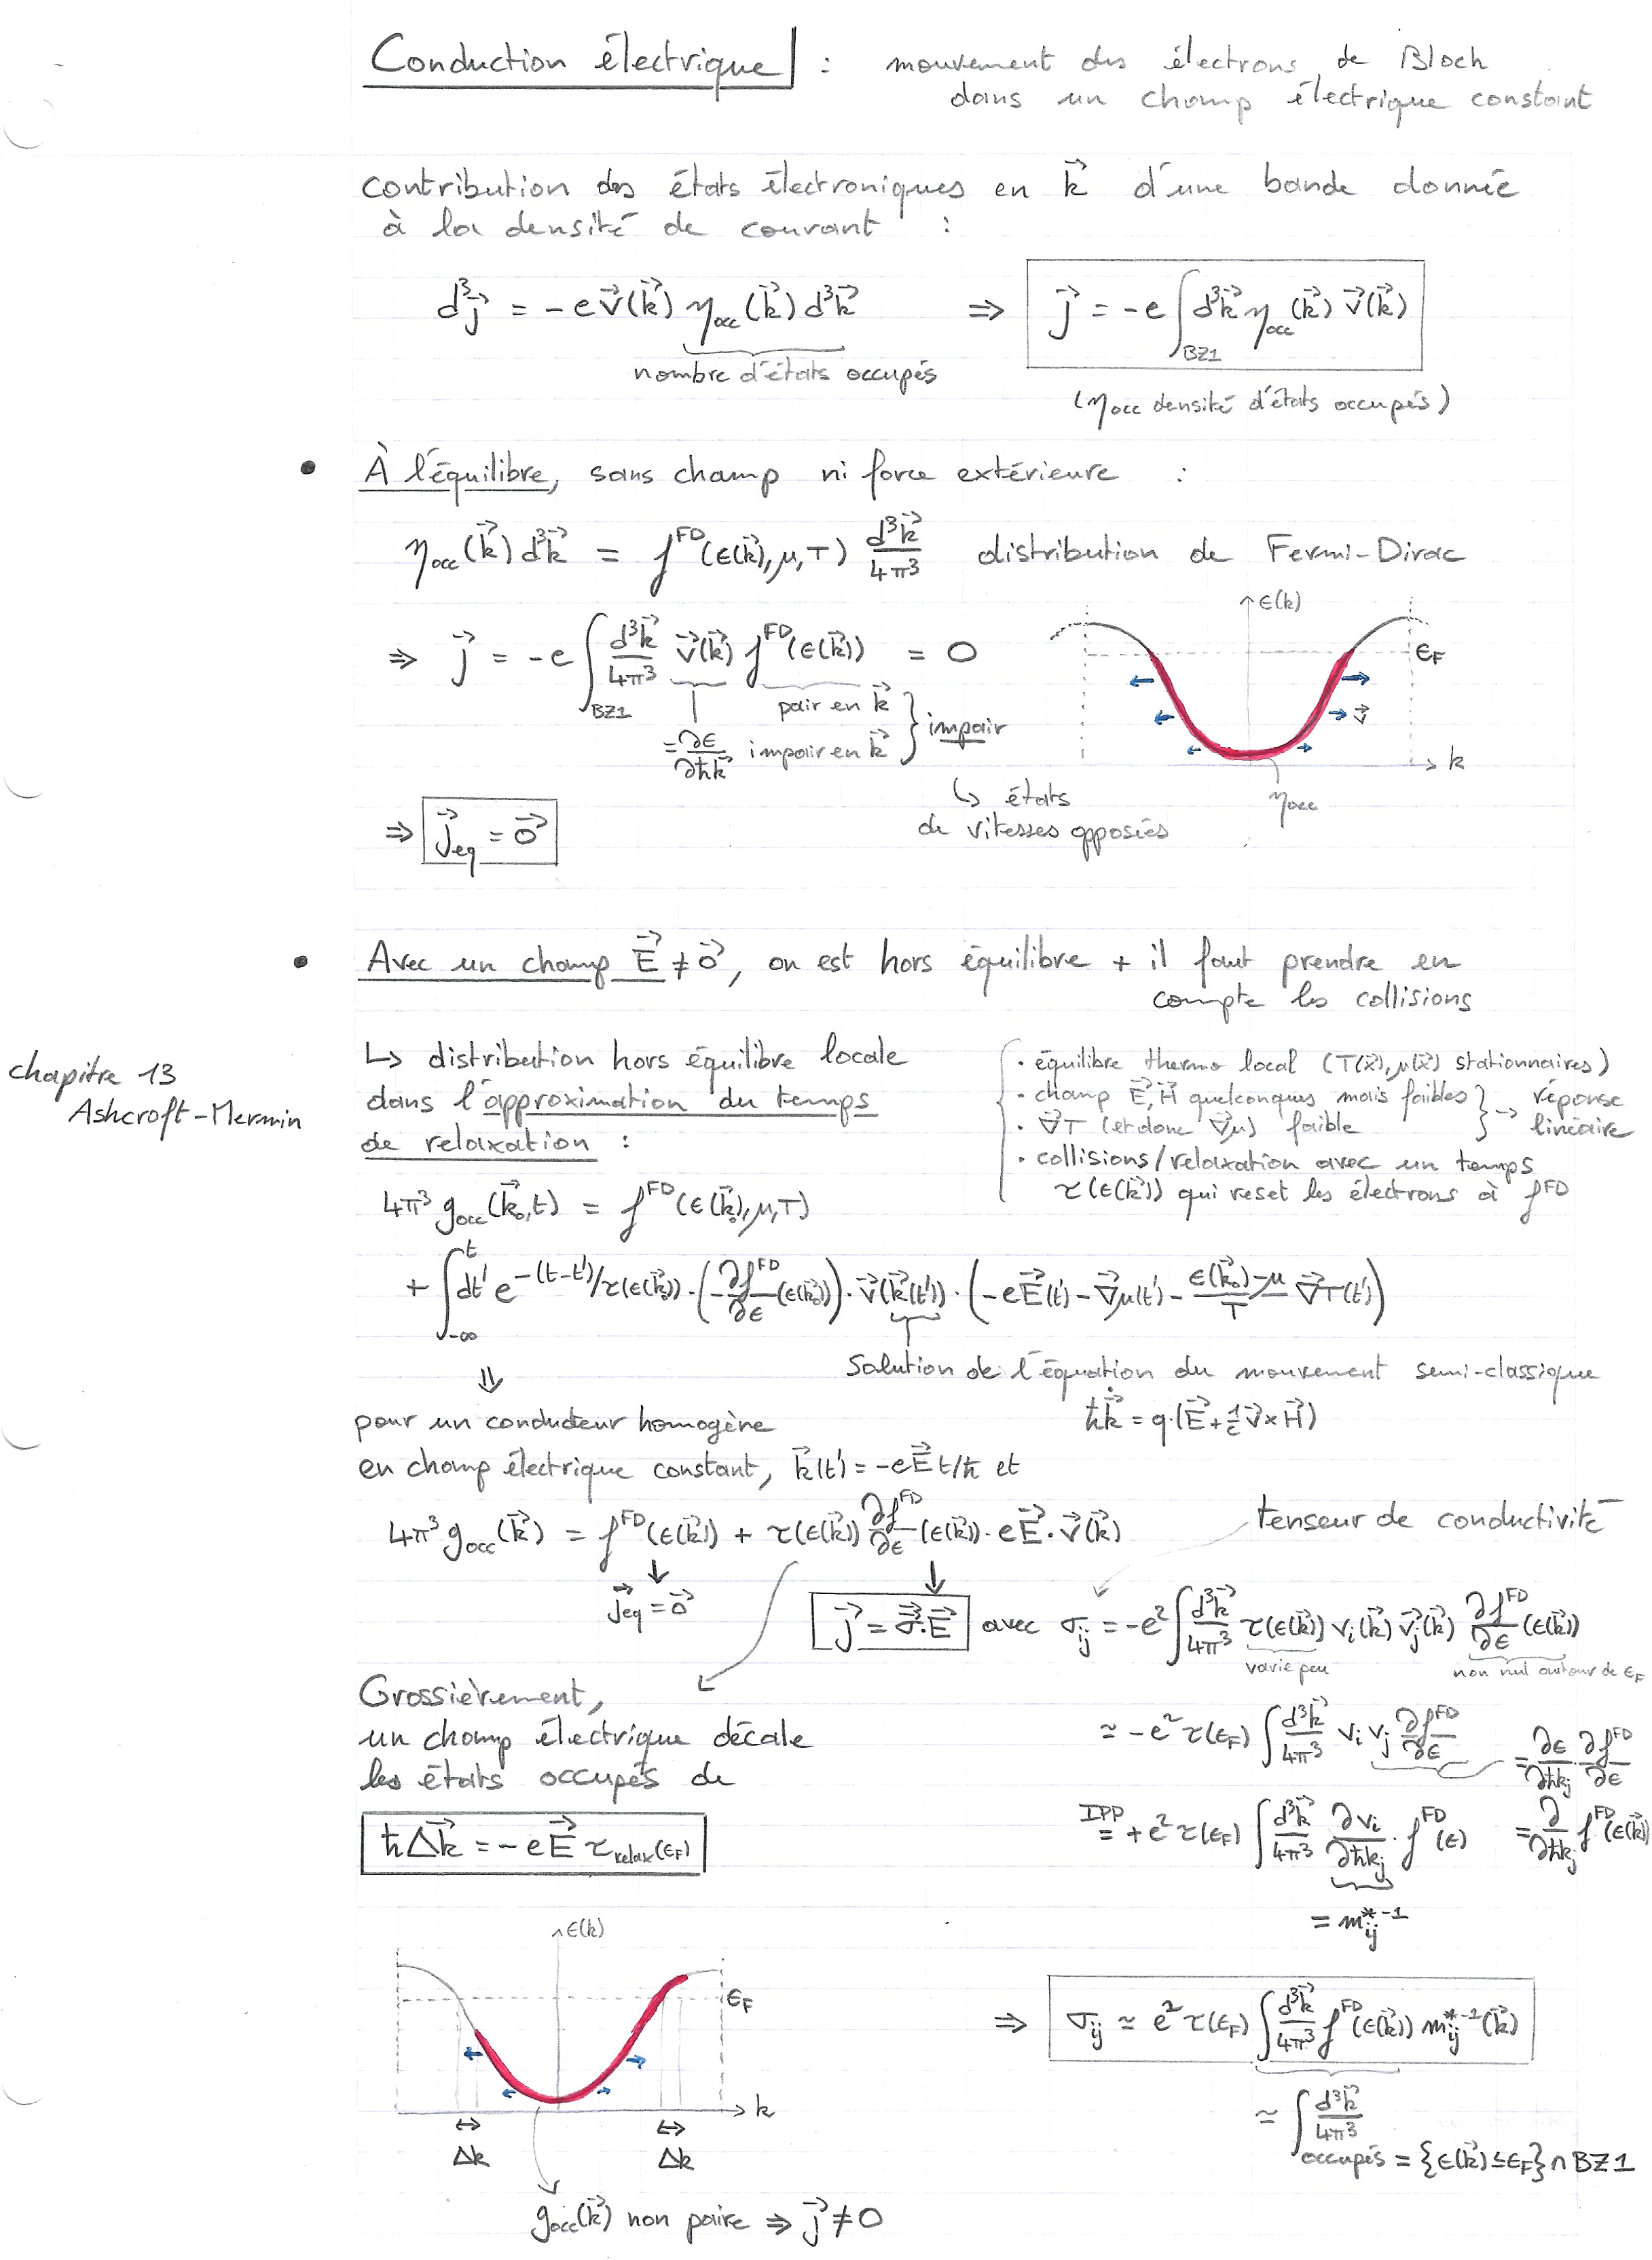 Conduction électrique : mouvement des électrons de Bloch
dans un champ électrique constant
contribution des états électroniques en k⃗ d'une bande donnée
à la densité de courant :
d³j⃗ = -e v⃗(k⃗) η_occ(k⃗) d³k⃗ ⇒ j⃗ = -e ∫_BZ1 d³k⃗ η_occ(k⃗) v⃗(k⃗)
nombre d'états occupés
(η_occ densité d'états occupés)
• À l'équilibre, sans champ ni force extérieure :
η_occ(k⃗) d³k⃗ = f^FD(ϵ(k⃗), μ, T) d³k⃗/4π³ distribution de Fermi-Dirac
⇒ j⃗ = -e ∫_BZ1 d³k⃗/4π³ v⃗(k⃗) f^FD(ϵ(k⃗)) = 0
pair en k⃗
= ∂ϵ/∂ħk⃗ impair en k⃗ } impair
↳ états
de vitesses opposées
ϵ(k)
ϵ_F
v⃗
k
η_occ
⇒ j⃗_eq = 0⃗
• Avec un champ E⃗ ≠ 0⃗, on est hors équilibre + il faut prendre en
compte les collisions
chapitre 13
Ashcroft-Mermin
↳ distribution hors équilibre locale
dans l'approximation du temps
de relaxation :
· équilibre thermo local (T(x⃗), μ(x⃗) stationnaires)
· champ E⃗, H⃗ quelconques mais faibles
· ∇⃗T (et donc ∇⃗μ) faible
} → réponse
linéaire
· collisions/relaxation avec un temps
τ(ϵ(k⃗)) qui reset les électrons à f^FD
4π³ g_occ(k⃗₀, t) = f^FD(ϵ(k⃗₀), μ, T)
+ ∫_-∞^t dt' e^-(t-t')/τ(ϵ(k⃗₀)) · (-∂f^FD/∂ϵ (ϵ(k⃗₀))) · v⃗(k⃗(t')) · (-eE⃗(t') - ∇⃗μ(t') - (ϵ(k⃗₀)-μ)/T ∇⃗T(t'))
Solution de l'équation du mouvement semi-classique
ħk⃗̇ = q·(E⃗ + 1/c v⃗×H⃗)
⇓
pour un conducteur homogène
en champ électrique constant, k⃗(t') = -eE⃗t/ħ et
4π³ g_occ(k⃗) = f^FD(ϵ(k⃗)) + τ(ϵ(k⃗)) ∂f^FD/∂ϵ (ϵ(k⃗)) · eE⃗ · v⃗(k⃗)
tenseur de conductivité
↓
j⃗_eq = 0⃗
↓
j⃗ = σ⃗⃗·E⃗ avec σ_ij = -e² ∫ d³k⃗/4π³ τ(ϵ(k⃗)) v_i(k⃗) v⃗_j(k⃗) ∂f^FD/∂ϵ (ϵ(k⃗))
varie peu
non nul autour de ϵ_F
Grossièrement,
un champ électrique décale
les états occupés de
ħΔk⃗ = -eE⃗ τ_relax(ϵ_F)
≃ -e² τ(ϵ_F) ∫ d³k⃗/4π³ v_i v_j ∂f^FD/∂ϵ
= ∂ϵ/∂ħk_j ∂f^FD/∂ϵ
IPP
= +e² τ(ϵ_F) ∫ d³k⃗/4π³ ∂v_i/∂ħk_j · f^FD(ϵ)
= ∂/∂ħk_j f^FD(ϵ(k⃗))
= m*⁻¹_ij
⇒ σ_ij ≃ e² τ(ϵ_F) ∫ d³k⃗/4π³ f^FD(ϵ(k⃗)) m*⁻¹_ij(k⃗)
≃ ∫ d³k⃗/4π³
occupés = {ϵ(k⃗) ≤ ϵ_F} ∩ BZ1
ϵ(k)
ϵ_F
k
Δk
Δk
g_occ(k⃗) non paire ⇒ j⃗ ≠ 0